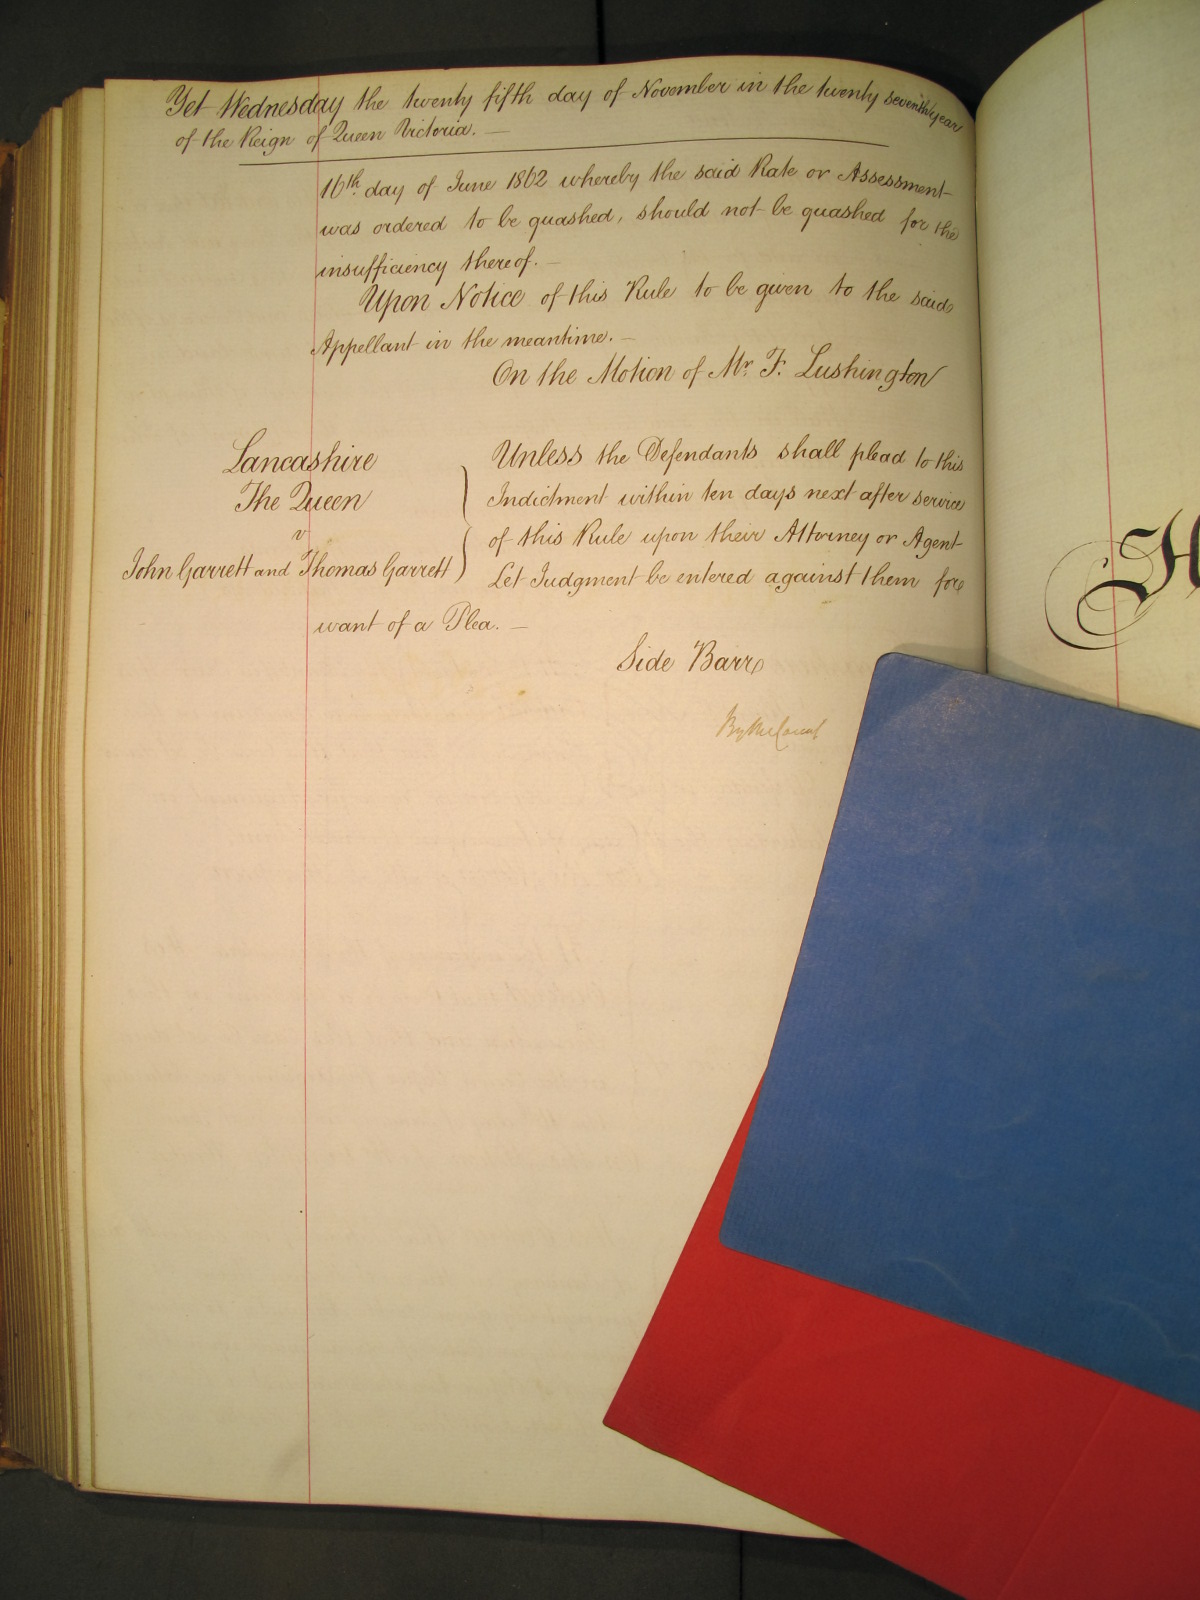 Yet Wednesday the twenty fifth day of November in the twenty seventh year
of the Reign of Queen Victoria. —
16th. day of June 1862 whereby the said Rate or Assessment
was ordered to be quashed, should not be quashed for the
insufficiency thereof. —
Upon Notice of this Rule to be given to the said
Appellant in the meantime. —
On the Motion of Mr. F. Lushington
Lancashire
The Queen
v
John Garrett and Thomas Garrett
Unless the Defendants shall plead to this
Indictment within ten days next after service
of this Rule upon their Attorney or Agent
Let Judgment be entered against them for
want of a Plea. —
Side Barr
By the Court
H